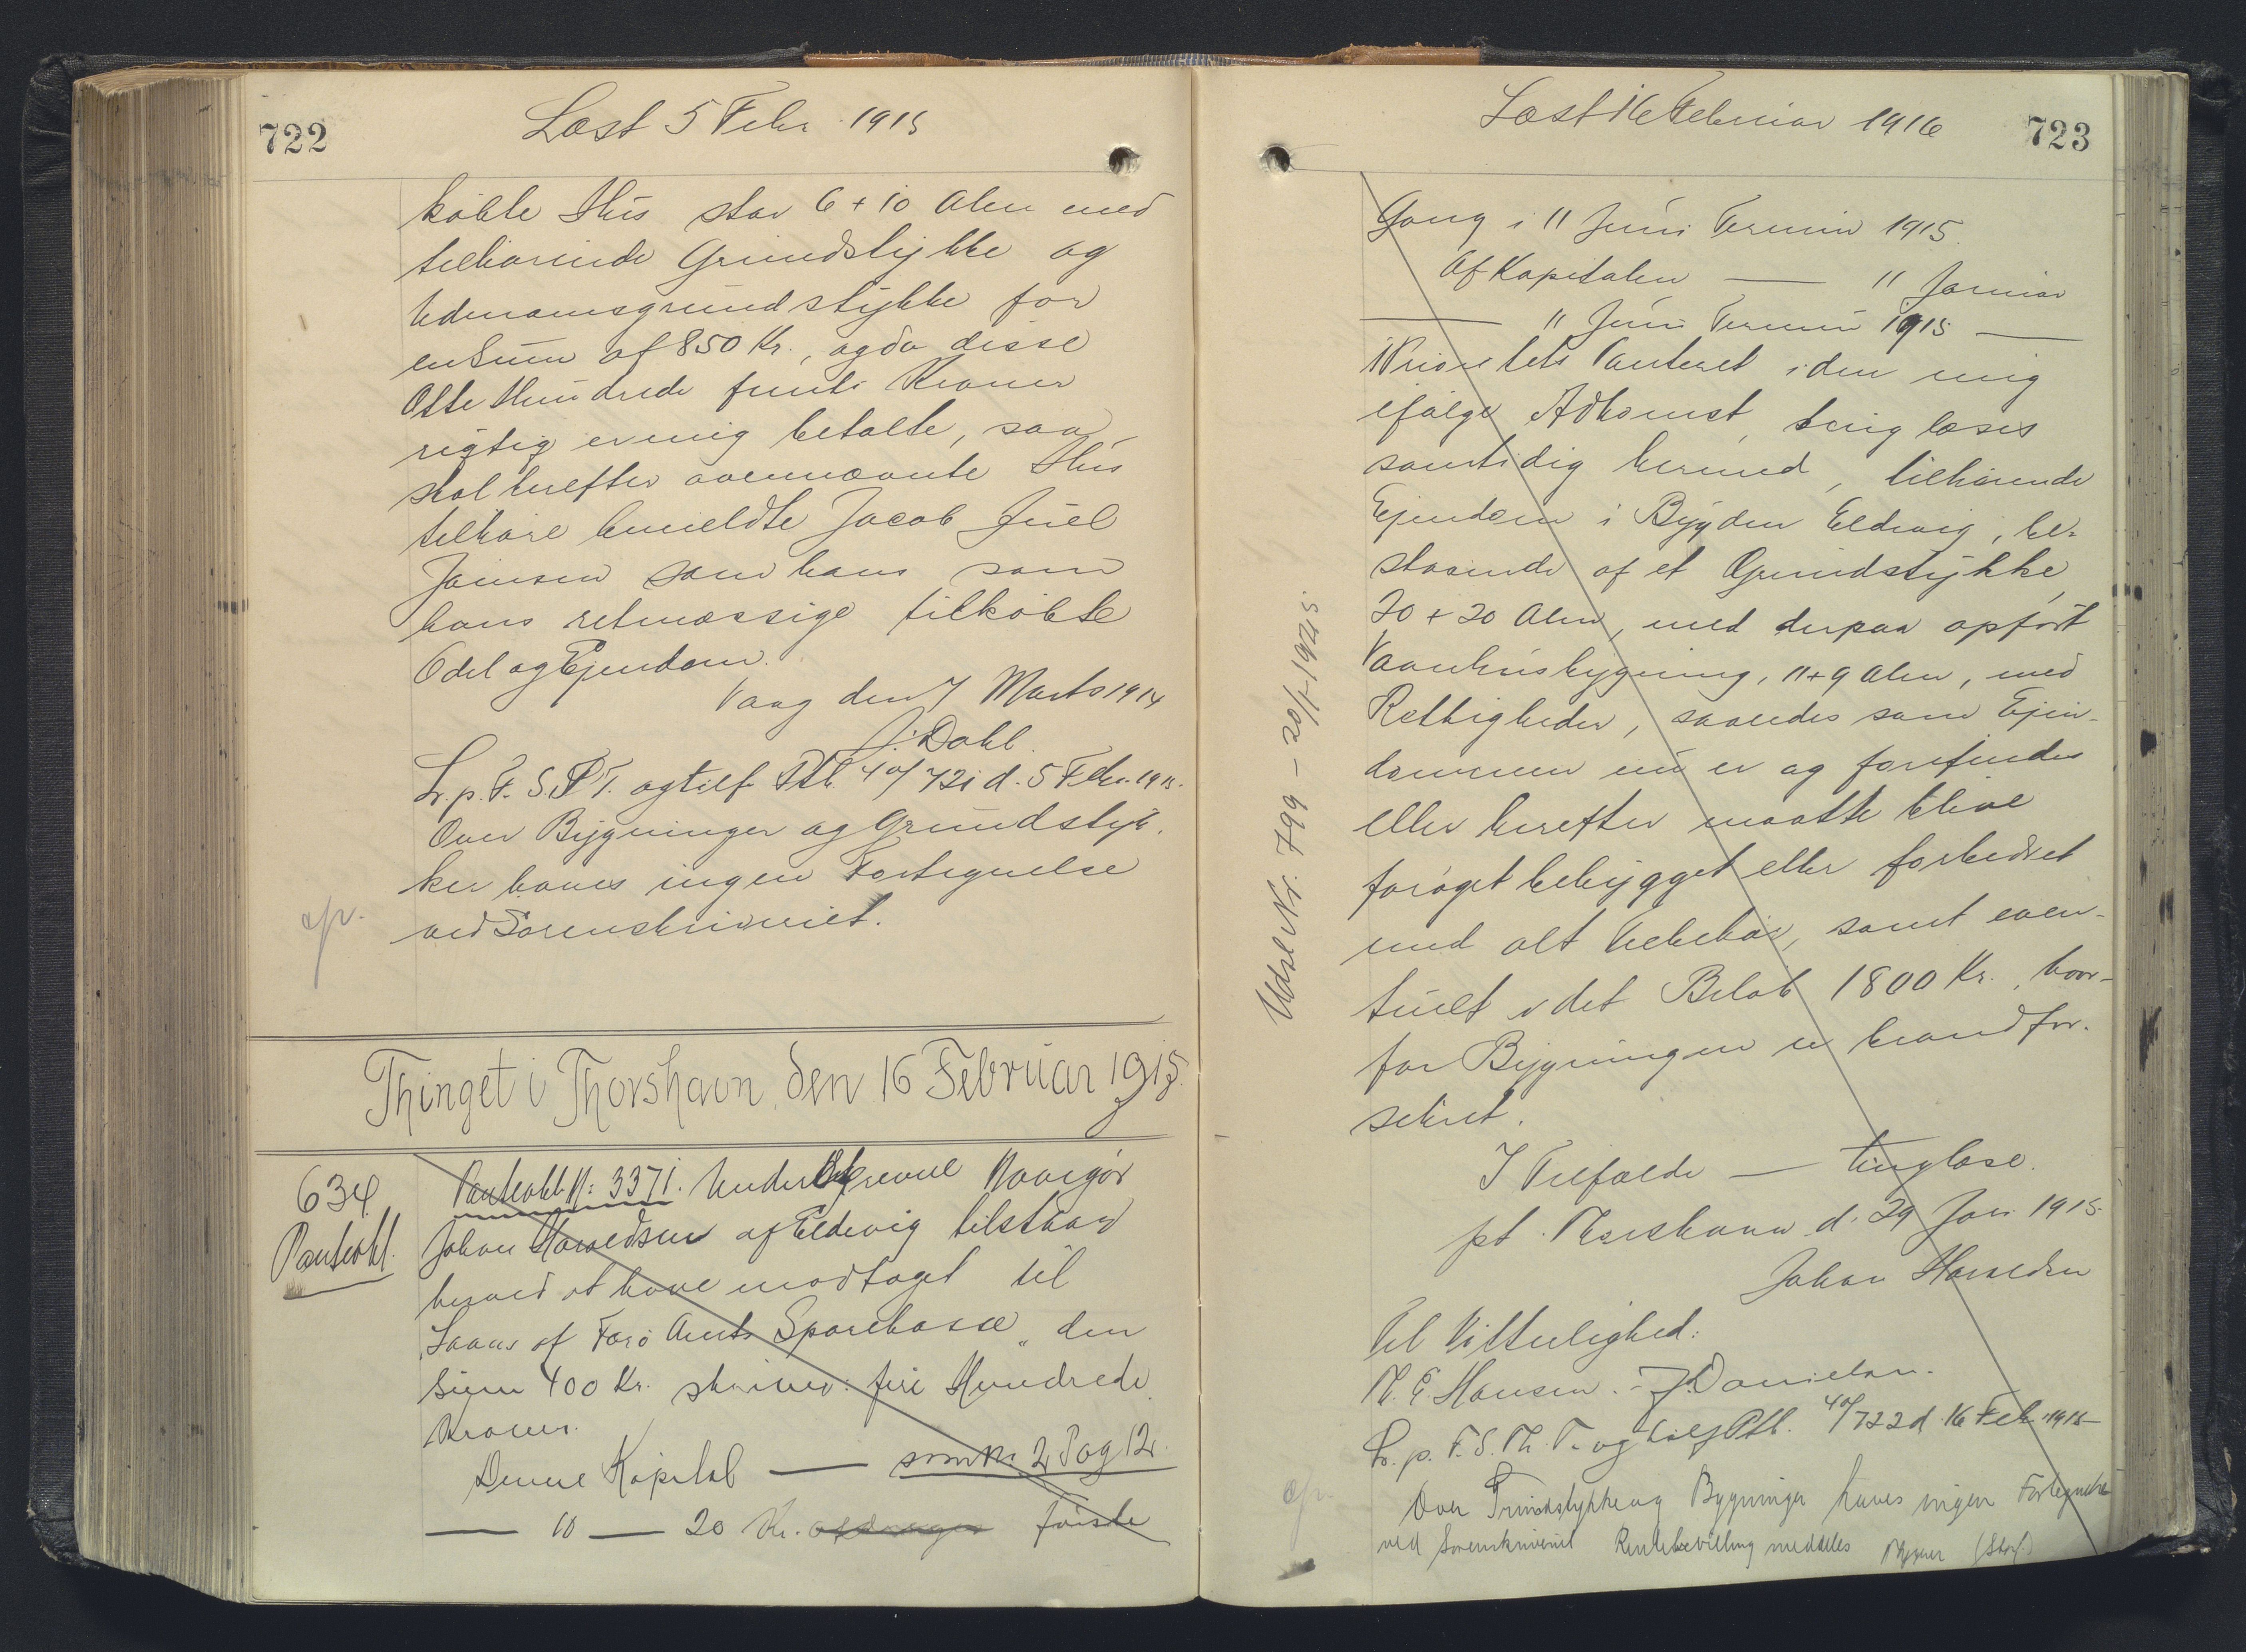 722
Læst 5 Febr. 1915
købte Hus stor 6 + 10 Alen med
tilhørende Grundstykke og
Udenomsgrundstykke for
en Sum af 850 Kr., og da disse
Otte Hundrede femti Kroner
rigtig er mig betalte, saa
skal herefter ovennævnte Hus
tilhøre bemeldte Jacob Juel
Joensen som hans som
hans retmæssige tilkøbte
Odel og Ejendom.
Vaag den 7 Marts 1914
J. Dahl.
Lr. p. F. S. P T. og tilf. Ptb. 40/721 d. 5 Febr. 1915.
Over Bygninger og Grundstyk-
ker haves ingen Fortegnelse
ved Sorenskriveriet.
Thinget i Thorshavn, den 16 Februar 1915.
634
Panteobl.
Panteobl. N: 3371. Underskrevne
Johan Haraldsen af Eldevig tilstaar
herved at have modtaget til
Laans af Færø Amts Sparekasse den
Sum 400 Kr. skriver: fire Hundrede
Kroner.
Denne Kapital — som Nr. 2 Pag 12.
— 10 — 20 Kr. første
Læst 16 Februar 1916
723
Gang i 11 Juni Termin 1915.
Af Kapitalen — 11 Januar
— 11 Juni Termin 1915 —
1 Prioritets Panteret i den mig
ifølge Adkomst, tinglæses
samtidig hermed, tilhørende
Ejendom i Bygden Eldevig, be-
staaende af et Grundstykke,
20 + 20 Alen, med derpaa opført
Vaanhusbygning, 11 + 9 Alen, med
Rettigheder, saaledes som Ejen-
dommen nu er og forefindes
eller herefter maatte blive
forøget bebygget eller forbedret
med alt Tilbehør, samt even-
tuelt i det Beløb 1800 Kr., hvor-
for Bygningen er brandfor-
sikret.
I Tilfælde — tinglæse.
pt. Thorshavn d. 29 Jan. 1915.
Johan Haraldsen
Til Vitterlighed:
M. E. Hansen. - J. Danielsen.
Lr. p. F. S. Th. T. og tilf Ptb. 40/722 d. 16 Feb. 1915
Over Grundstykke og Bygninger haves ingen Fortegnelse
ved Sorenskriveriet Rentebevilling meddeles
Udsl Nr. 799 - 20/1-1925.